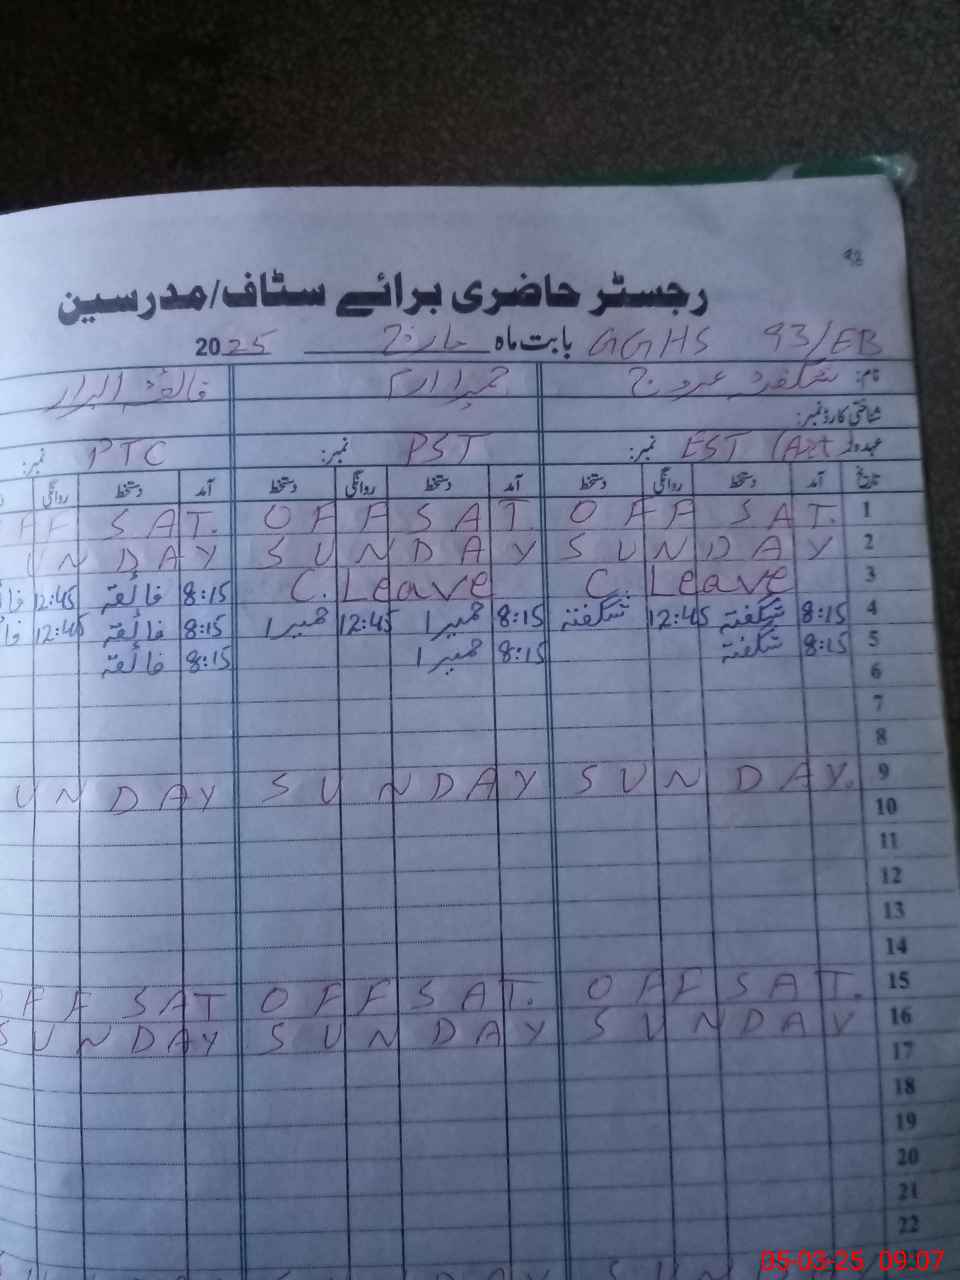 92
رجسٹر حاضری برائے سٹاف/مدرسین
GGHS 93/EB بابت ماہ مارچ 2025
نام: شگفتہ عروج حمیرا فائقہ
شناختی کارڈ نمبر:
عہدہ EST (Art نمبر: PST نمبر: PTC نمبر:
تاریخ آمد دستخط روانگی دستخط آمد دستخط روانگی دستخط آمد دستخط روانگی
1 OFF SAT. OFF SAT. FF SAT.
2 SUNDAY SUNDAY UNDAY
3 C. Leave C. Leave 8:15 فائقہ 12:45
4 8:15 شگفتہ 12:45 شگفتہ 8:15 حمیرا 12:45 حمیرا 8:15 فائقہ 12:45
5 8:15 شگفتہ 8:15 حمیرا 8:15 فائقہ
6
7
8
9 SUNDAY. SUNDAY UNDAY
10
11
12
13
14
15 OFF SAT. OFF SAT. OFF SAT
16 SUNDAY SUNDAY SUNDAY
17
18
19
20
21
22
05-03-25 09:07